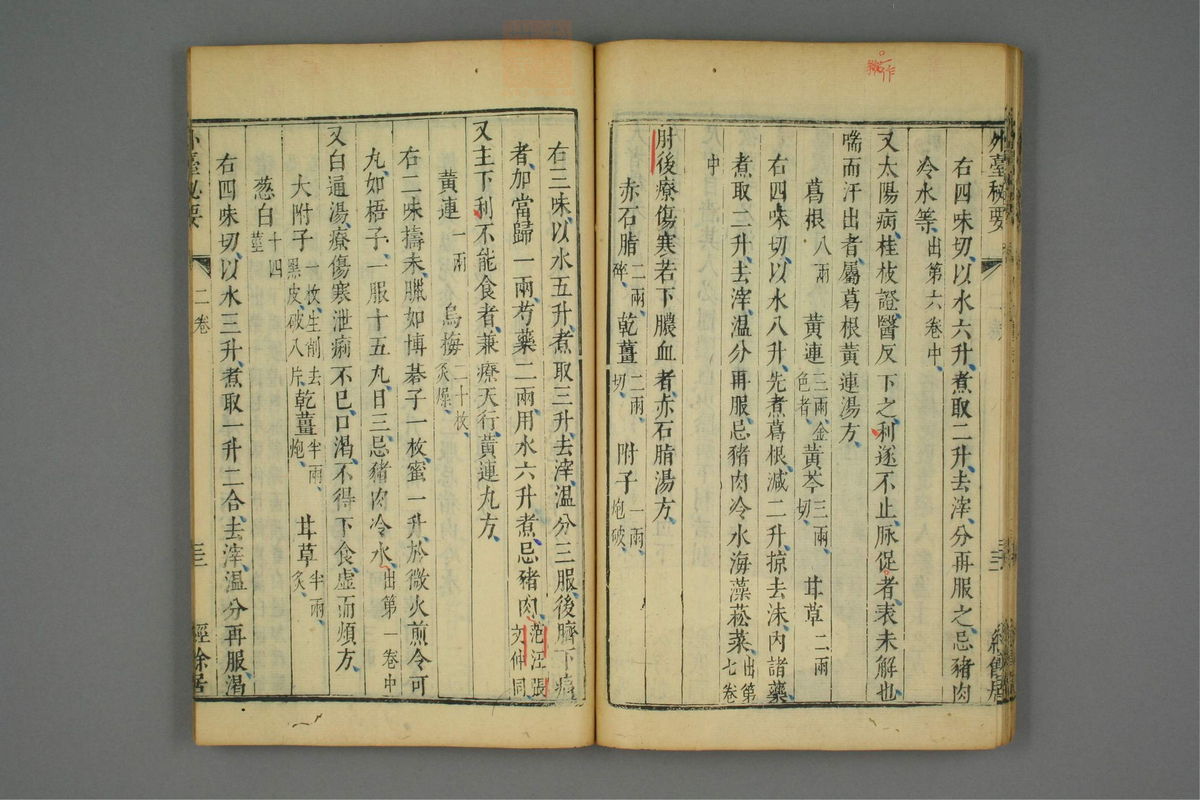 外臺秘要
右四味切以水六升煮取二升去滓分再服之忌豬肉
冷水等出第六卷中
又太陽病桂枝證醫反下之利遂不止脉促者表未解也
喘而汗出者屬葛根黃連湯方
葛根八兩 黃連三兩金色者 黃芩三兩切 甘草二兩
右四味切以水八升先煮葛根減二升掠去沫內諸藥
煮取二升去滓温分再服忌豬肉冷水海藻菘菜出第七卷
中
肘後療傷寒若下膿血者赤石脂湯方
赤石脂二兩碎 乾薑二兩切 附子一兩炮破
右三味以水五升煮取三升去滓温分三服後臍下痛
者加當歸一兩芍藥二兩用水六升煮忌豬肉范汪張文仲同
又主下利不能食者兼療天行黃連丸方
黃連一兩 烏梅二十枚炙燥
右二味擣末臘如博碁子一枚蜜一升於微火煎令可
丸如梧子一服十五丸日三忌豬肉冷水出第一卷中
又白通湯療傷寒泄痢不已口渴不得下食虛而煩方
大附子一枚生削去黑皮破入片 乾薑半兩炮 甘草半兩炙
葱白十四莖
右四味切以水三升煮取一升二合去滓温分再服渴
外臺秘要 二卷 三三 經餘居